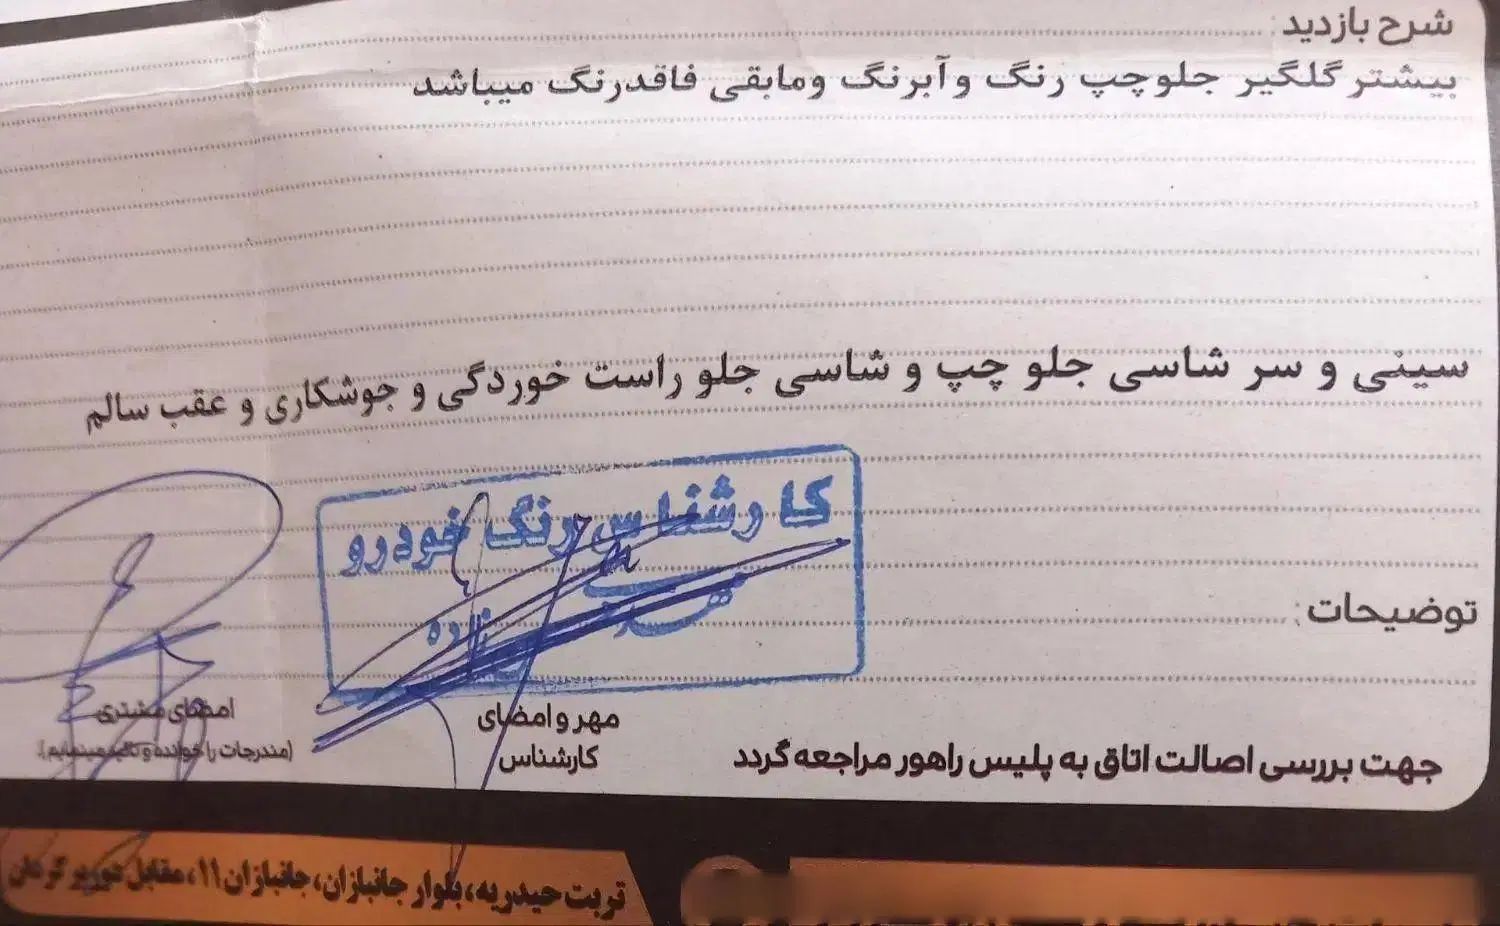 شرح بازدید:
بیشتر گلگیر جلوچپ رنگ وآبرنگ ومابقی فاقدرنگ میباشد
سینی و سر شاسی جلو چپ و شاسی جلو راست خوردگی و جوشکاری و عقب سالم
کارشناس رنگ خودرو
زاده
توضیحات:
مهر و امضای
کارشناس
امضای مشتری
(مندرجات را خوانده و تایید مینمایم).
جهت بررسی اصالت اتاق به پلیس راهور مراجعه گردد
تربت حیدریه، بلوار جانبازان، جانبازان ۱۱، مقابل